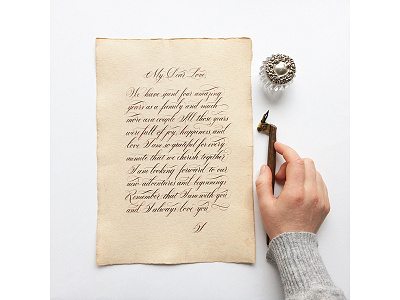 My Dear Love,
We have spent four amazing
years as a family and much
more as a couple. All these years
were full of joy, happiness and
love. I am so grateful for every
minute that we cherish together.
I am looking forward to our
new adventures and beginning.
Remember that I am with you
and I always love you.